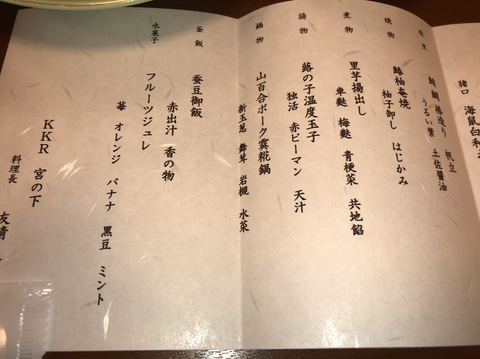 猪口 海鼠白和え
鯛 横造り 帆立
うるい 紫 土佐醤油
焼物
鰆柚庵焼
柚子卸し はじかみ
煮物
里芋揚出し
車麩 梅麩 青梗菜 共地餡
揚物
蕗の子温度玉子
独活 赤ピーマン 天汁
鍋物
山百合ポーク糞糀鍋
新玉葱 舞茸 岩槻 水菜
釜飯
蚕豆御飯
赤出汁 香の物
水菓子
フルーツジュレ
苺 オレンジ バナナ 黒豆 ミント
KKR 宮の下
料理長